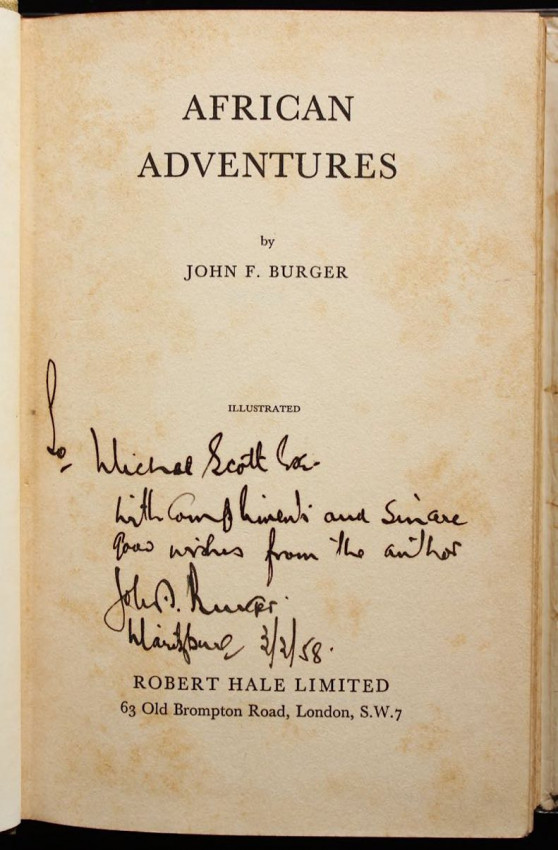 AFRICAN
ADVENTURES
by
JOHN F. BURGER
ILLUSTRATED
To, Michael Scott Esq.
with Compliments and Sincere
good wishes from the author
John F. Burger.
Maritzburg 3/2/58.
ROBERT HALE LIMITED
63 Old Brompton Road, London, S.W.7